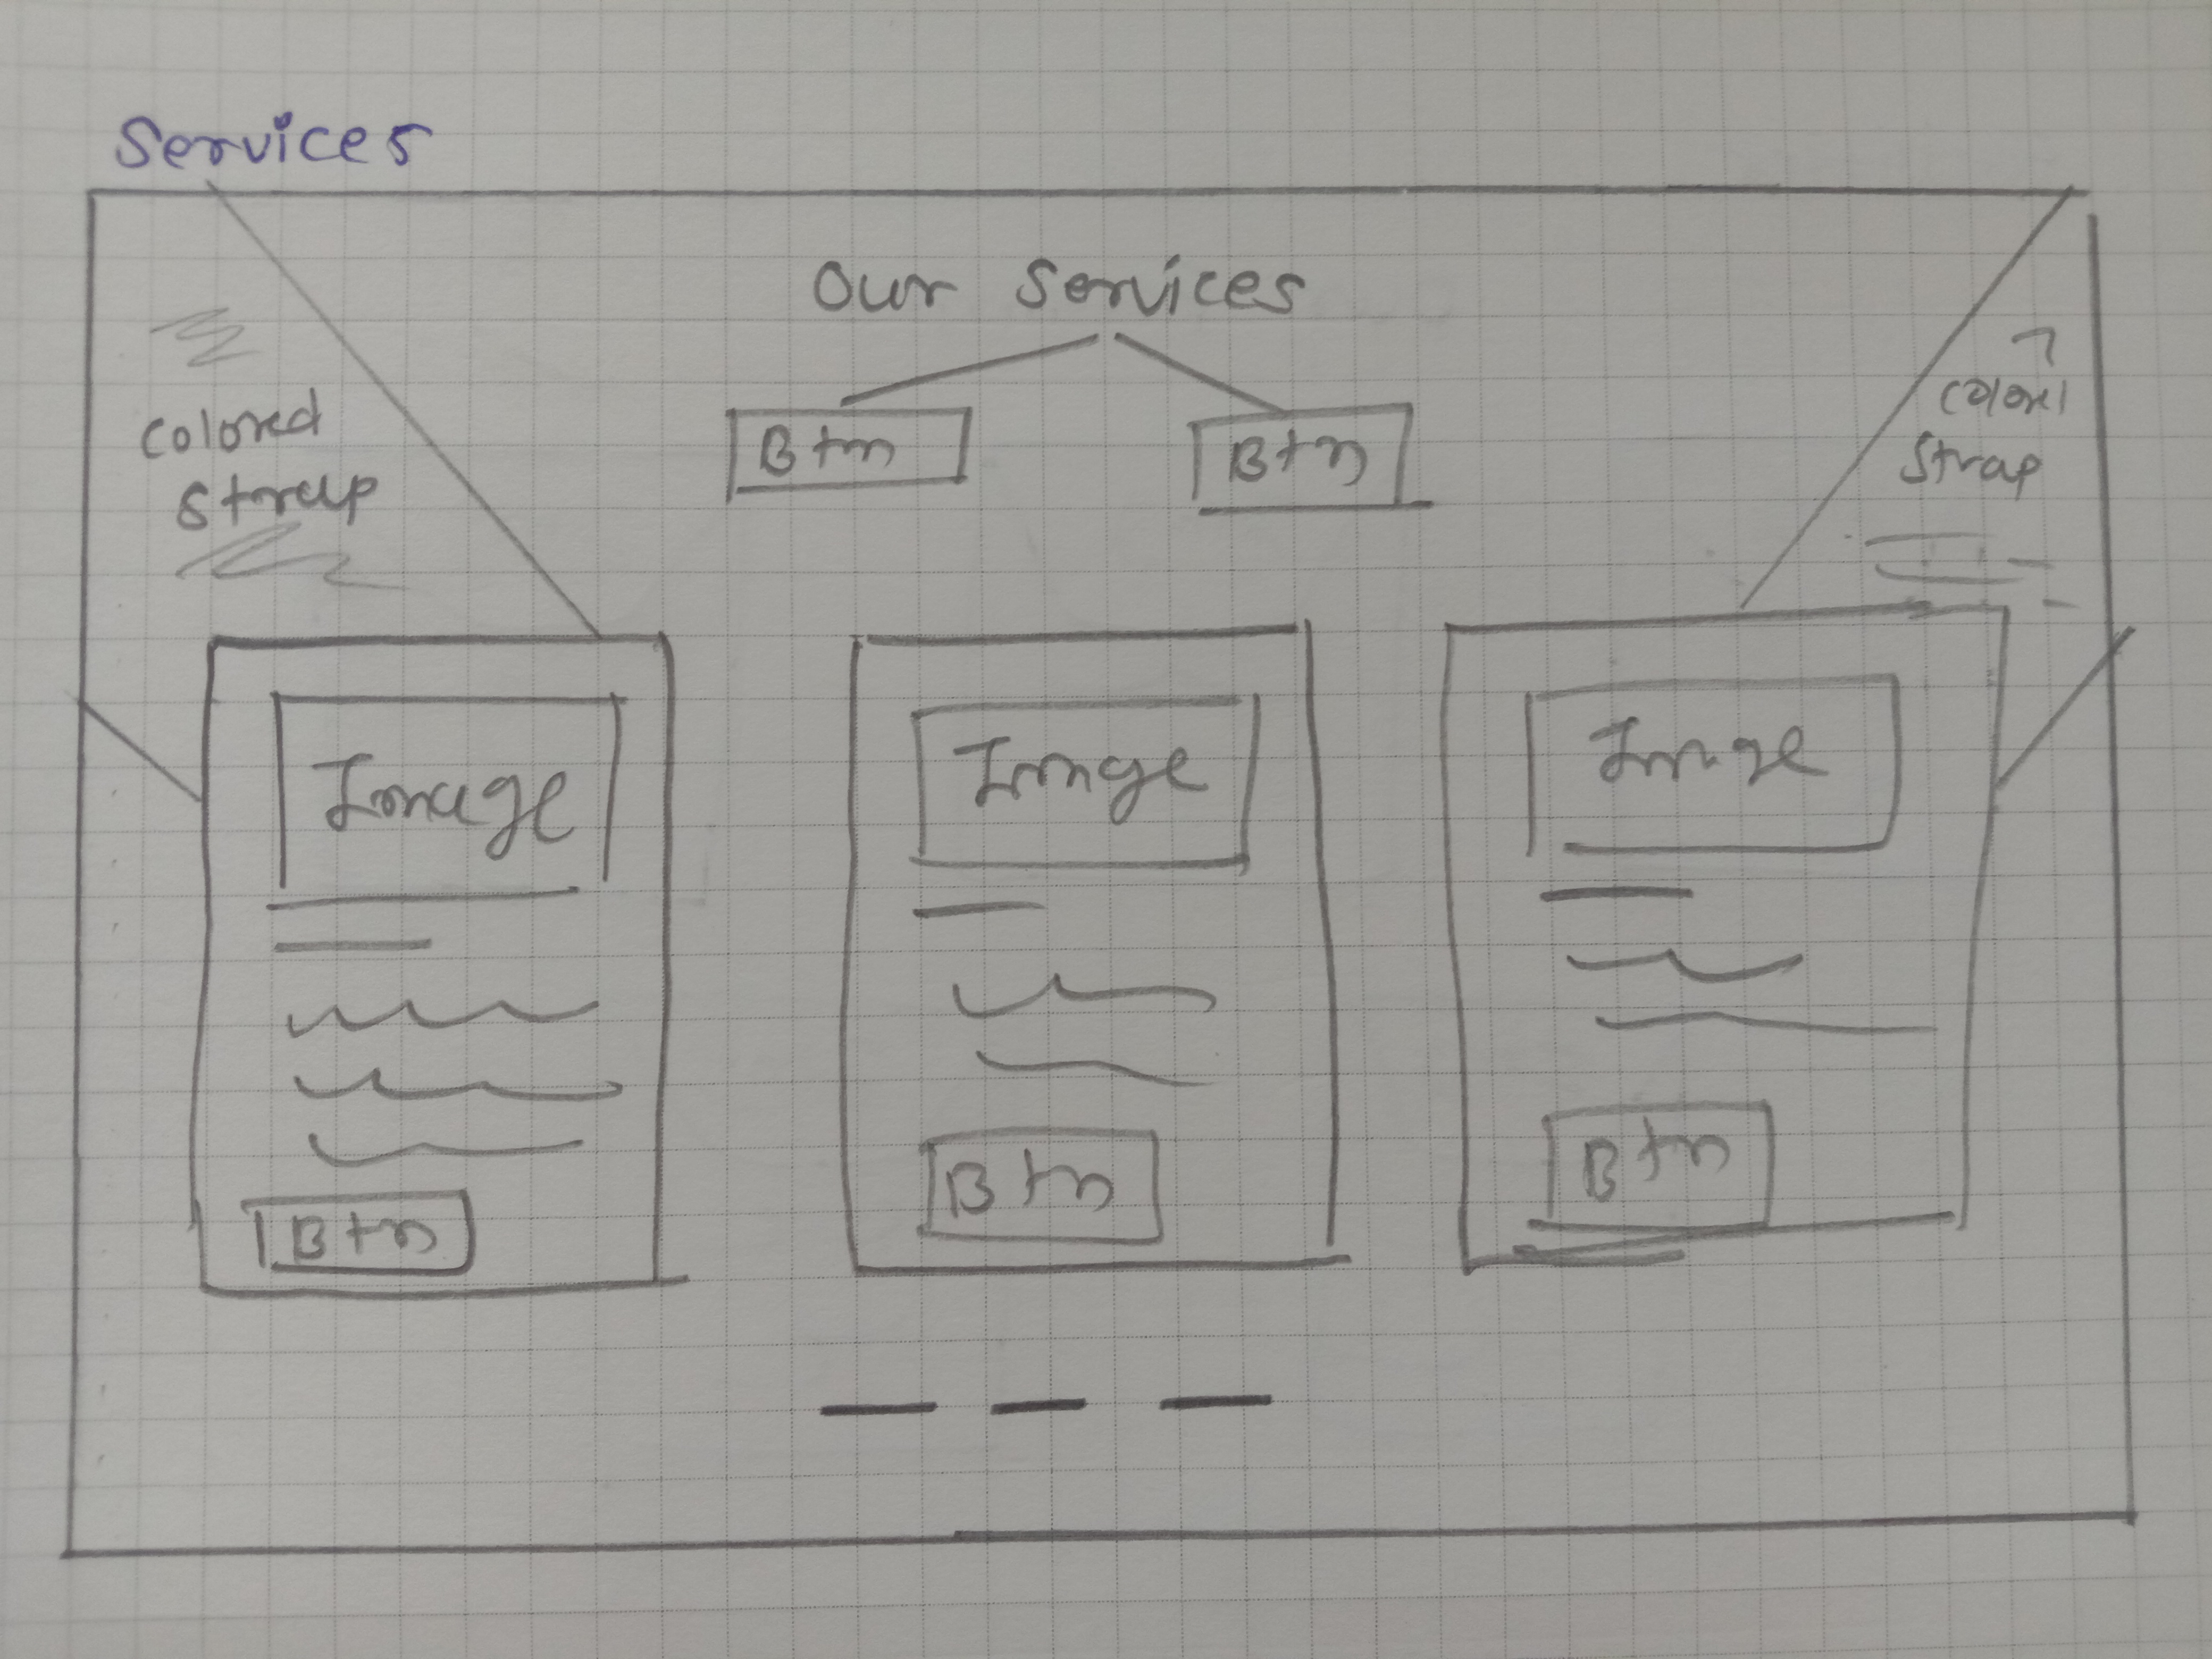 Services
Our Services
Btn
Btn
Colored
Strap
Colored
Strap
Image
Image
Image
Btn
Btn
Btn